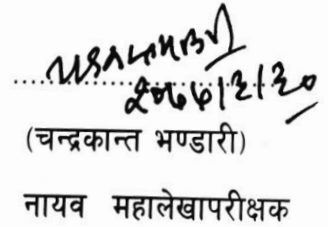 २०७७/३/३०
(चन्द्रकान्त भण्डारी)
नायव महालेखापरीक्षक